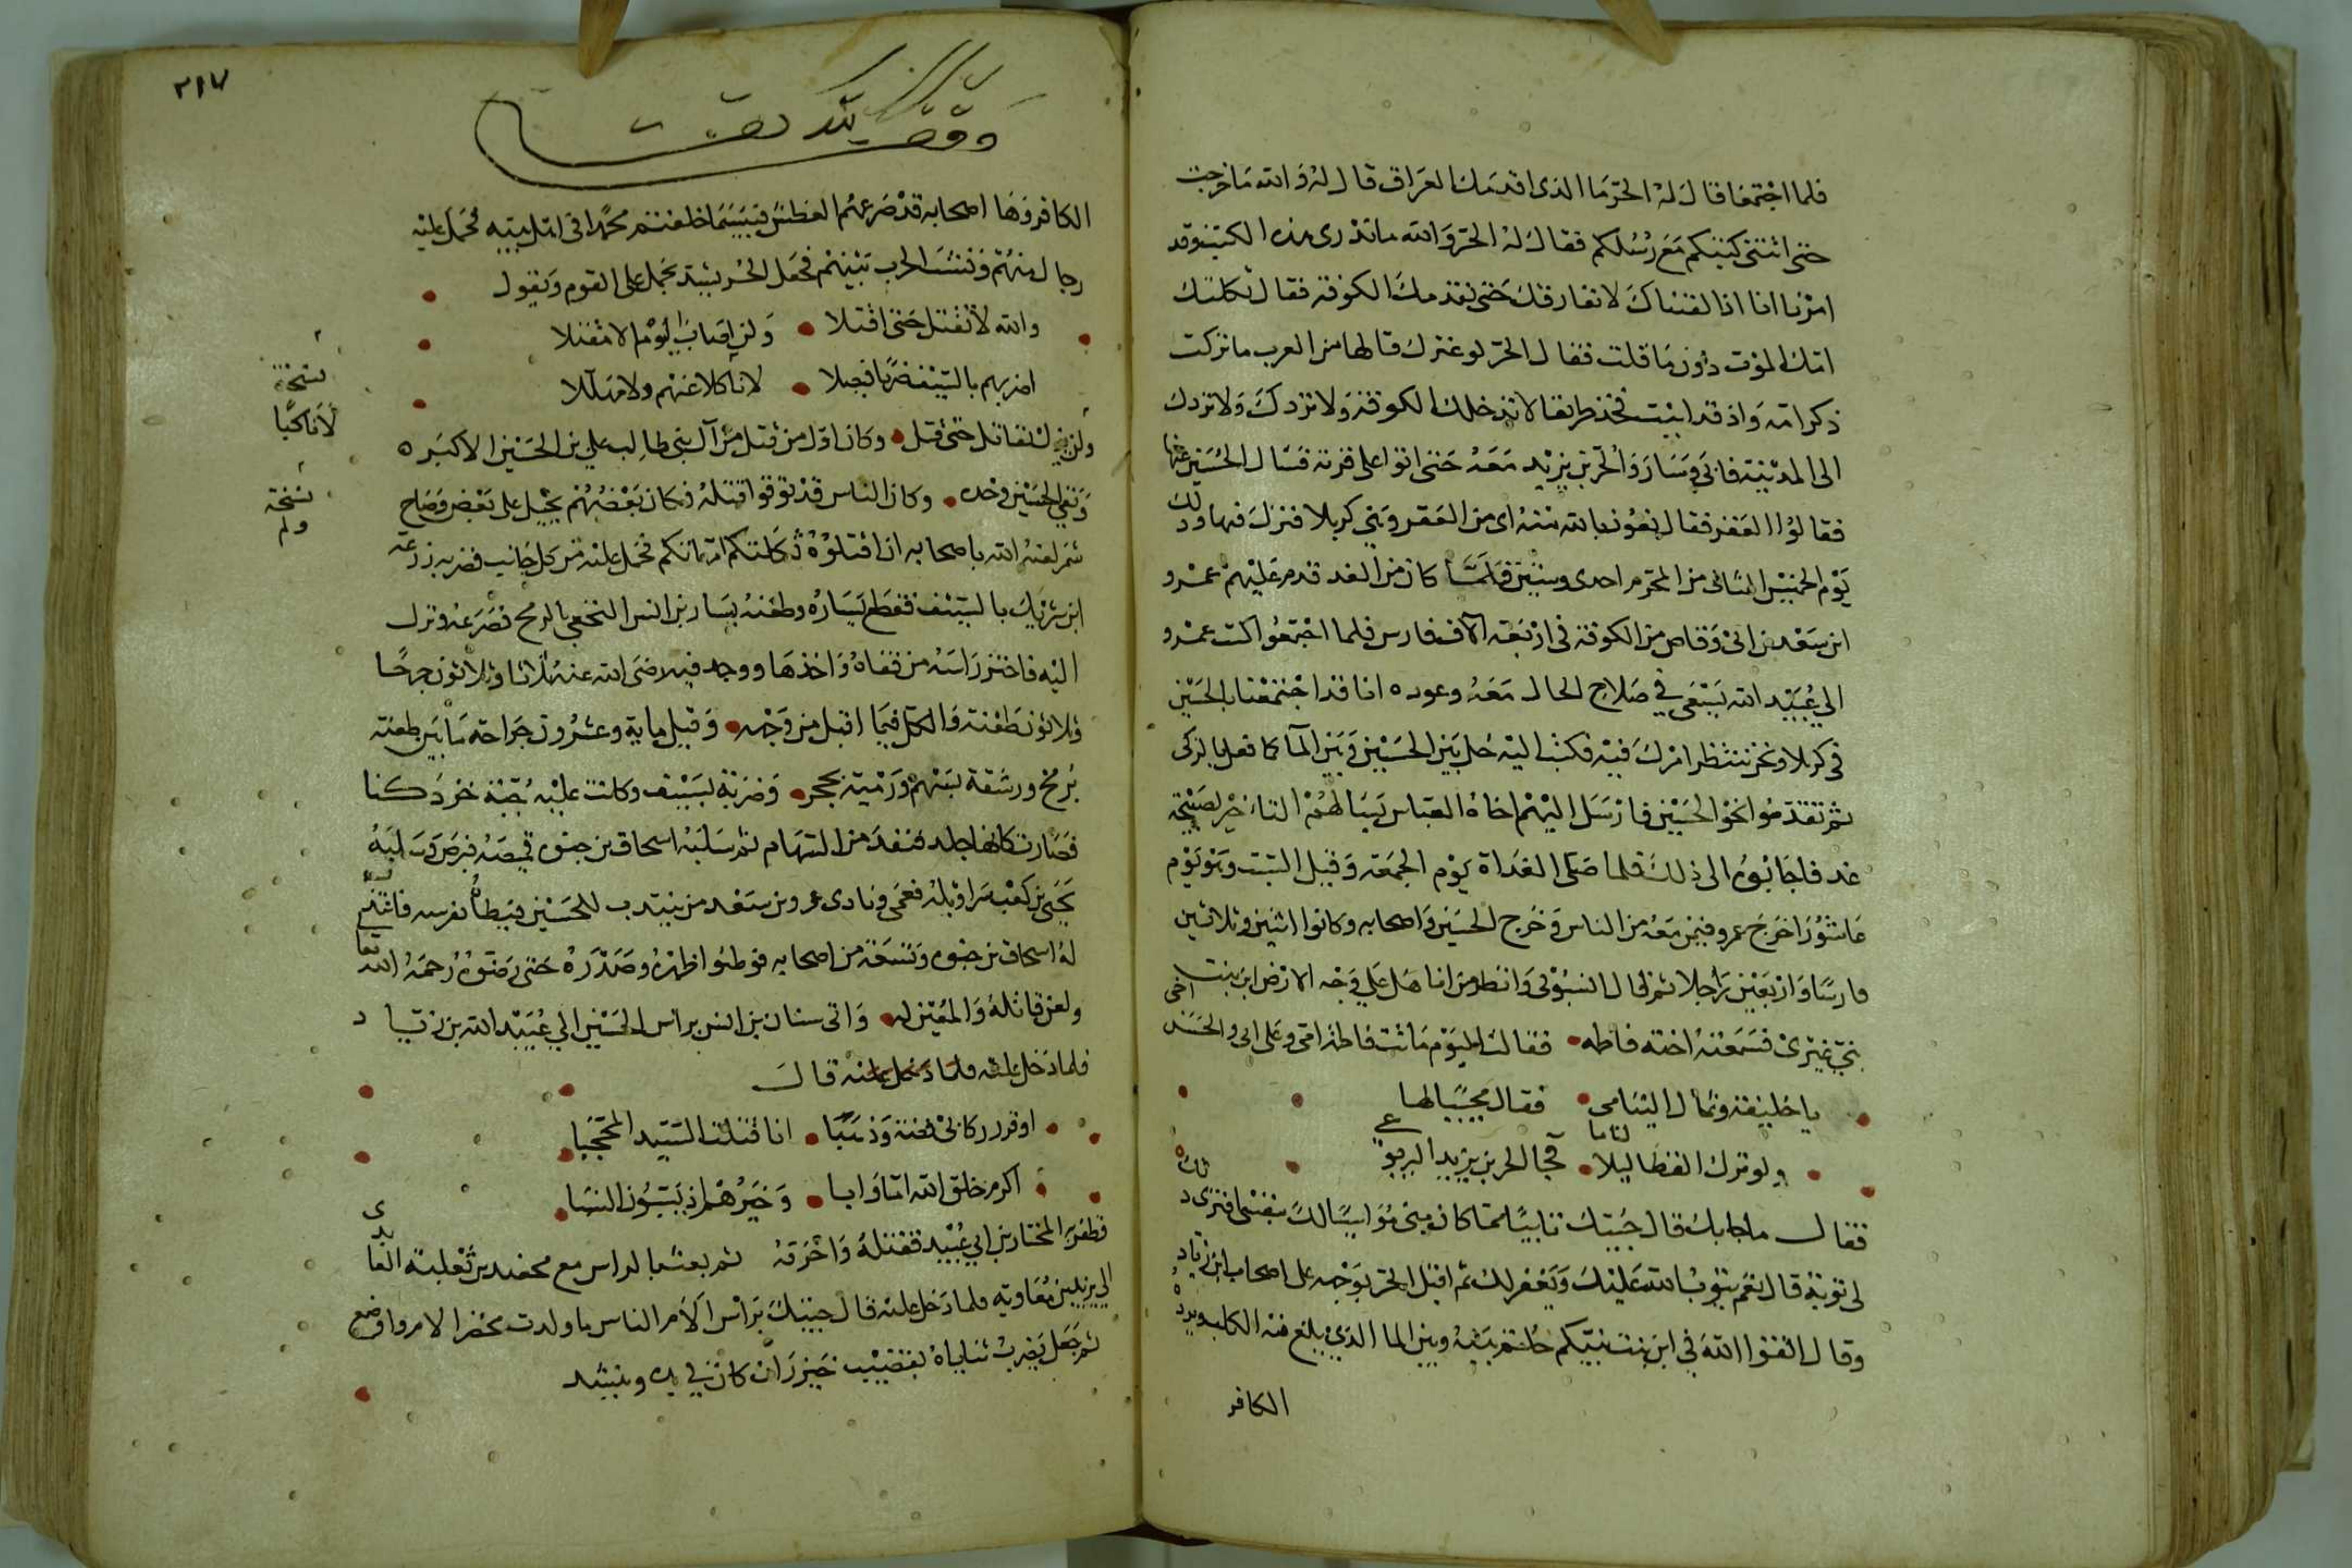 فلما اجتمعا قال له الحر ما الذى اقدمك العراق قال له والله ما خرجت
حتى اتتنى كتبكم مع رسلكم فقال له الحر والله ما ندرى هذه الكتب وقد
امرنا انا اذا لقيناك لا نفارقك حتى نقدمك الكوفة فقال ثكلتك
امك الموت دون ما قلت فقال الحر لو غيرك قالها من العرب ما تركت
ذكر امه واذ قد ابيت فخذ طريقا لا تدخلك الكوفة ولا تردك
الى المدينة فابى وسار والحر بن يزيد معه حتى اتوا على قرية فسال الحسين عنها
فقالوا العقر فقال نعوذ بالله منه اى من العقر وهى كربلا فنزل فيها وذلك
يوم الخميس الثانى من المحرم احدى وستين فلما كان من الغد قدم عليهم عمرو
ابن سعد بن ابى وقاص من الكوفة فى اربعة الاف فارس فلما اجتمعوا كتب عمرو
الى عبيد الله يسعى فى صلاح الحال معه وعوده انا قد اجتمعنا بالحسين
فى كربلا ونحن ننتظر امرك فيه فكتب اليه حل بين الحسين وبين الما كما فعل بالزكى
ثم تقدموا نحو الحسين فارسل اليهم اخاه العباس يسالهم التاخير لصبيحة
غد فاجابوه الى ذلك فلما صلى الغداة يوم الجمعة وقيل السبت وهو يوم
عاشورا خرج عمرو فيمن معه من الناس وخرج الحسين واصحابه وكانوا اثنين وثلاثين
فارسا واربعين راجلا ثم قال انسبونى وانظروا من انا هل على وجه الارض ابن بنت
نبى غيرى فسمعته اخته فاطمه فقالت اليوم ماتت فاطمة امى وعلى ابى والحسن اخى
يا خليفة وثمال اليتامى فقال مجيبا لها
ولو ترك القطا ليلا لناما فجا الحر بن يزيد اليربوعى
فقال ما جا بك قال جيتك تايبا مما كان منى مواسيا لك بنفسى افترى ذلك
لى توبة قال نعم يتوب الله عليك ويغفر لك ثم اقبل الحر بوجهه على اصحاب ابن زياد
وقال اتقوا الله فى ابن بنت نبيكم حلتم بينه وبين الما الذى يلغ فيه الكلب ويرده
الكافر
٣١٧
وقف لله تعالى
الكافر وها اصحابه قد صرعهم العطش فبيسما خلفتم محمدا فى اهل بيته فحمل عليه
رجال منهم ونشب الحرب بينهم فجعل الحر يشتد يحمل على القوم ويقول
والله لا تقتل حتى اقتلا ولن اصاب اليوم الا مقبلا
اضربهم بالسيف ضربا فيصلا لا ناكلا عنهم ولا مهللا
نسخة
لا ناكبا
ولن يزل يقاتل حتى قتل وكان اول من قتل من آل بنى طالب على بن الحسين الاكبر
نسخة
ولم
وبقى الحسين وحده وكان الناس قد توقوا قتله فكان بعضهم يحيل على بعض وصاح
شمر لعنه الله باصحابه ان اقتلوه ثكلتكم امهاتكم فحمل عليه من كل جانب فضربه زرعة
ابن شريك بالسيف فقطع يساره وطعنه يسار بن انس النخعى بالرمح فصرعه ونزل
اليه فاحتز راسه من قفاه واخذها ووجد فيه رضى الله عنه ثلاثا وثلاثون جرحا
وثلاثون طعنة والكل فيما اقبل من وجهه وقيل ماية وعشرون جراحة ما بين طعنة
برمح ورشقة بسهم ورمية بحجر وضربة بسيف وكانت عليه جبة خز دكنا
فصارت كانها جلد قنفد من السهام ثم سلبه اسحاق بن حيوه قميصه فبرص وسلبه
يحيى بن كعب سراويله فعمى ونادى عمرو بن سعد من ينتدب للحسين فيطاه بفرسه فانتدب
له اسحاق بن حيوه وتسعة من اصحابه فوطئوا ظهره وصدره حتى رضوه رحمه الله تعالى
ولعن قاتله والمعين له واتى سنان بن انس براس الحسين الى عبيد الله بن زياد
فلما دخل عليه فلما دخل عليه قال
اوقر ركابى فضة وذهبا انا قتلت السيد المحجبا
اكرم خلق الله اما وابا وخيرهم اذ ينسبون النسبا
فظفر المختار بن ابى عبيد فقتله واحرقه ثم بعث بالراس مع محفد بن ثعلبة العايدى
الى يزيد بن معاويه فلما دخل عليه قال جيتك براس الام الناس ما ولدت محفز الام واوضع
ثم جعل يضرب ثناياه بقضيب خيزران كان فى يده وينشد